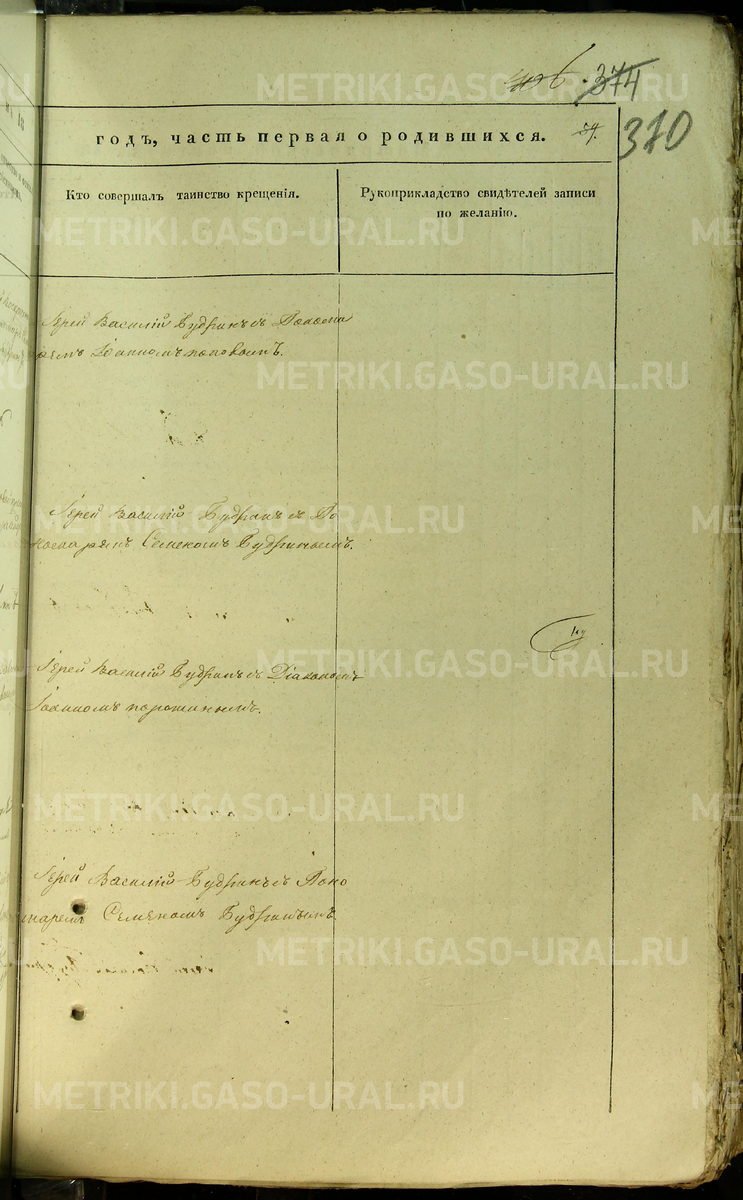 374
370
годъ, часть первая о родившихся.
54.
Кто совершалъ таинство крещенія.
Рукоприкладство свидѣтелей записи
по желанію.
Іерей Василій Будринъ съ Понома
ремъ Іоанномъ Поповымъ.
Іерей Василій Будринъ съ По
номаремъ Семеномъ Будринымъ.
Іерей Василій Будринъ съ Діакономъ
Іоанномъ Порошинымъ.
Іерей Василій Будринъ съ Поно
маремъ Семеномъ Будринымъ
METRIKI.GASO-URAL.RU